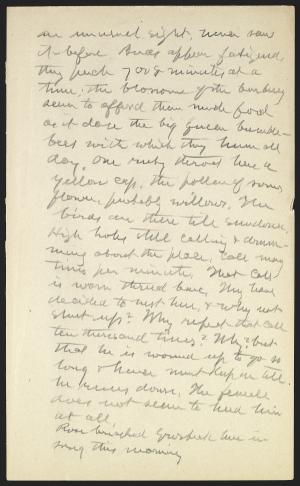 an unusual sight, never saw
it before. Birds appear fatigued,
they perch 7 or 8 minutes at a
time; the blossoms of the barberry
seem to afford them much food
as it does the big Queen bumble-
bees with which they hum all
day. One ruby throat has a
yellow cap, the pollen of some
flower, probably willows. The
birds are there till sundown.
High holes still calling & drum-
ming about the place, call many
times per minute. That call
is worn thread bare. They have
decided to nest here, & why not
shut up? Why repeat that call
ten thousand times? Why? but
that he is wound up to go so
long & never must keep on till
he runs down. The female
does not seem to heed him
at all.
Rose breasted Grosbeak here in
song this morning